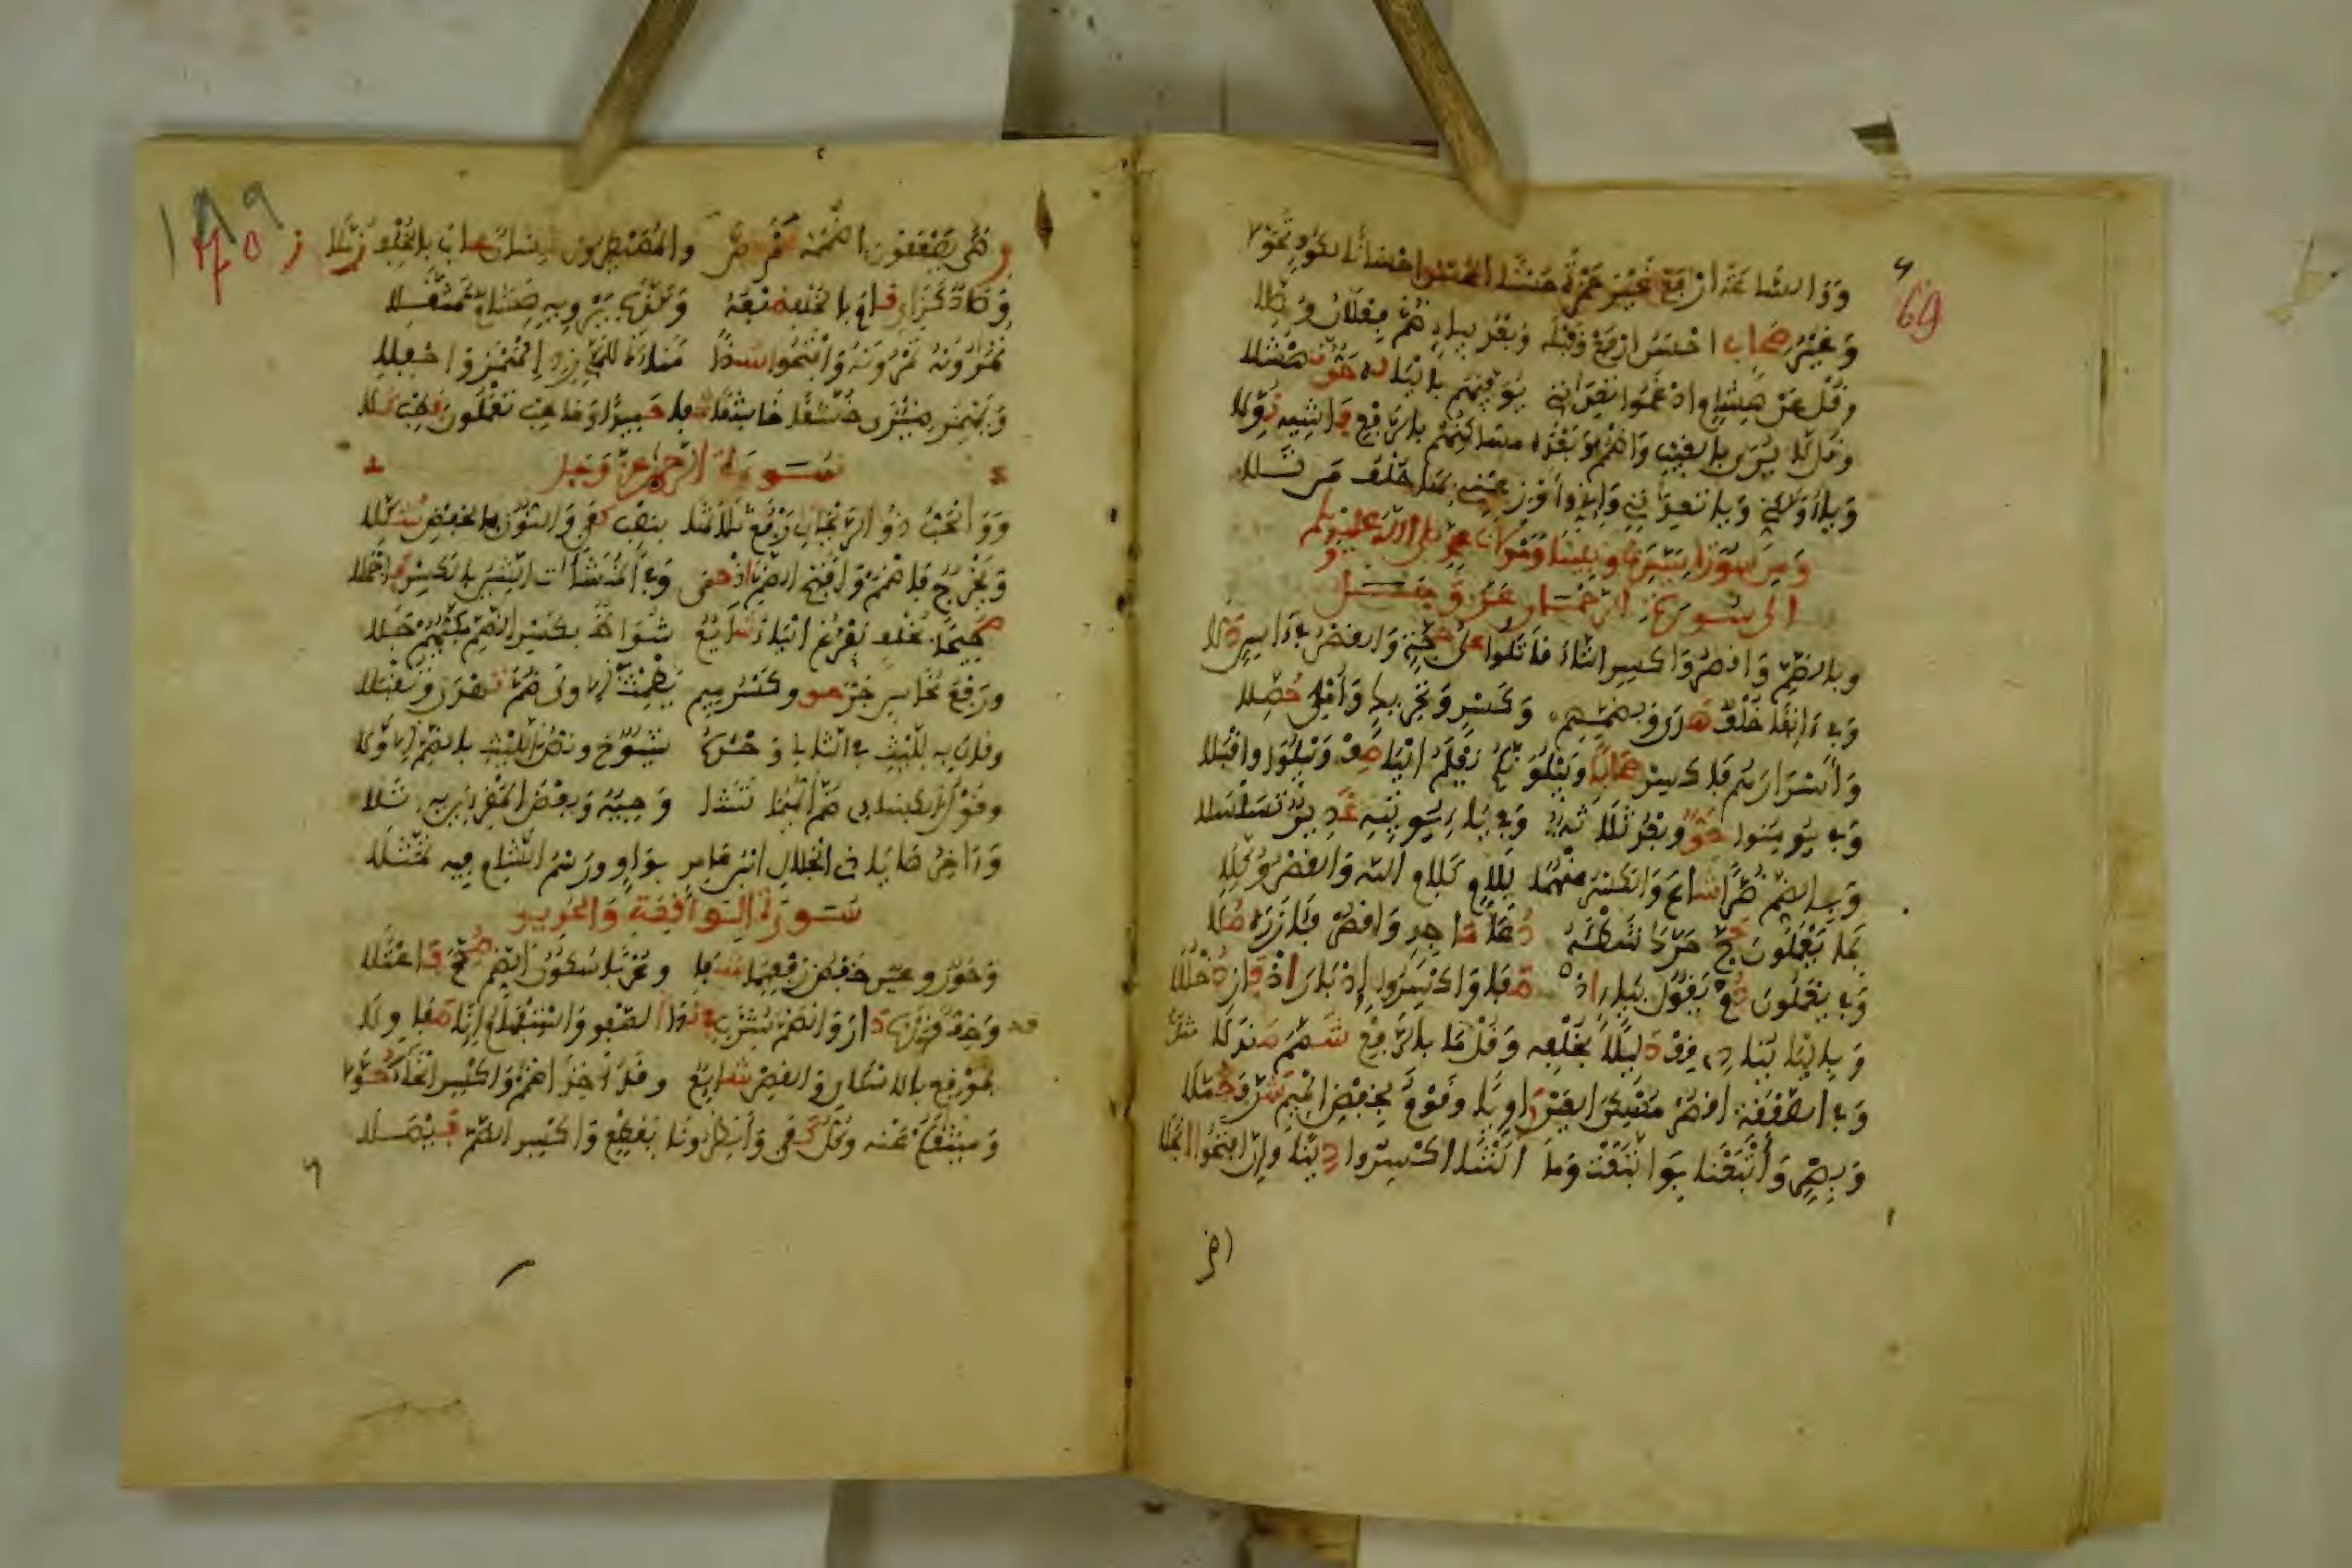 69
ووالساعة ارفع غير حمزة حسنا المحسن احسانا لكوف تحولا
وغير صحاب احسن ارفع وقبله وبعد بياء ضم فعلان وصلا
وقل عن هشام ادغموا تعدانني يوفيهم باليا له حق نهشلا
وقل لا يرى بالغيب واضمم وبعده مساكنهم بالرفع فاشيه نولا
وياء ولكني ويا تعدانني وإني وأوزعني بها خلف من تلا
ومن سورة سيدنا ونبينا ومولانا محمد صلى الله عليه وسلم
الى سورة الرحمان عز وجل
وبالضم واقصر واكسر التاء قاتلوا على حجة والقصر في ءاسن دلا
وفي ءانفا خلف هدى وبضمهم وكسر وتحريك وأملي حصلا
وأسرارهم فاكسر صحابا ونبلونكم نعلم اليا صف ونبلو واقبلا
وفي يومنوا حق وبعد ثلاثة وفي ياء يوتيه غدير تسلسلا
وبالضم ضرا شاع والكسر عنهما بلام كلام الله والقصر وكلا
بما يعملون حج حرك شطأه دعا ماجد واقصر فآزره ملا
وفي يعملون دم يقول بياء اذ صفا واكسروا ادبار اذ فاز دخللا
وباليا ينادي قف دليلا بخلفه وقل مثل ما بالرفع شمم صندلا
وفي الصعقة اقصر مسكن العين راويا وقوم بخفض الميم شرف حملا
وبصر وأتبعنا بواتبعت وما التنا اكسروا دنيا وإن افتحوا الجلا
رضى يصعقون اضممه كم نص والمصيطرون لسان عاب بالخلف زملا
وصاد كزاي قام بالخلف ضبعه وكذب يرويه هشام مثقلا
تمارونه تمرونه وافتحوا شذا مناءة للمكي زد الهمز واحفلا
ويهمز ضيزى خشعا خاشعا شفا حميدا وخاطب تعلمون فطب كلا
سورة الرحمن عز وجل
ووالحب ذو الريحان رفع ثلاثها بنصب كفى والنون بالخفض شكلا
ويخرج فاضمم وافتح الضم اذ حمى وفي المنشآت الشين بالكسر فاحملا
صحيحا بخلف نفرغ الياء شايع شواظ بكسر الضم مكيهم جلا
ورفع نحاس جر حق وكسر ميم يطمث في الاولى ضم تهدى وتقبلا
وقال به لليث في الثان وحده شيوخ ونص الليث بالضم الاولا
وقول الكسائي ضم أيهما تشا وجيه وبعض المقرئين به تلا
وءاخرها يا ذي الجلال ابن عامر بواو ورسم الشام فيه تمثلا
سورة الواقعة والحديد
وحور وعين خفض رفعهما شفا وعربا سكون الضم صحح فاعتلا
وخف قدرنا دار وانضم شرب في ندا الصفو واستفهام إنا صفا ولا
بموقع بالاسكان والقصر شايع وقد أخذ اضمم واكسر الخاء حولا
وميثاقكم عنه وكل كفى وأنظرونا بقطع واكسر الضم فيصلا